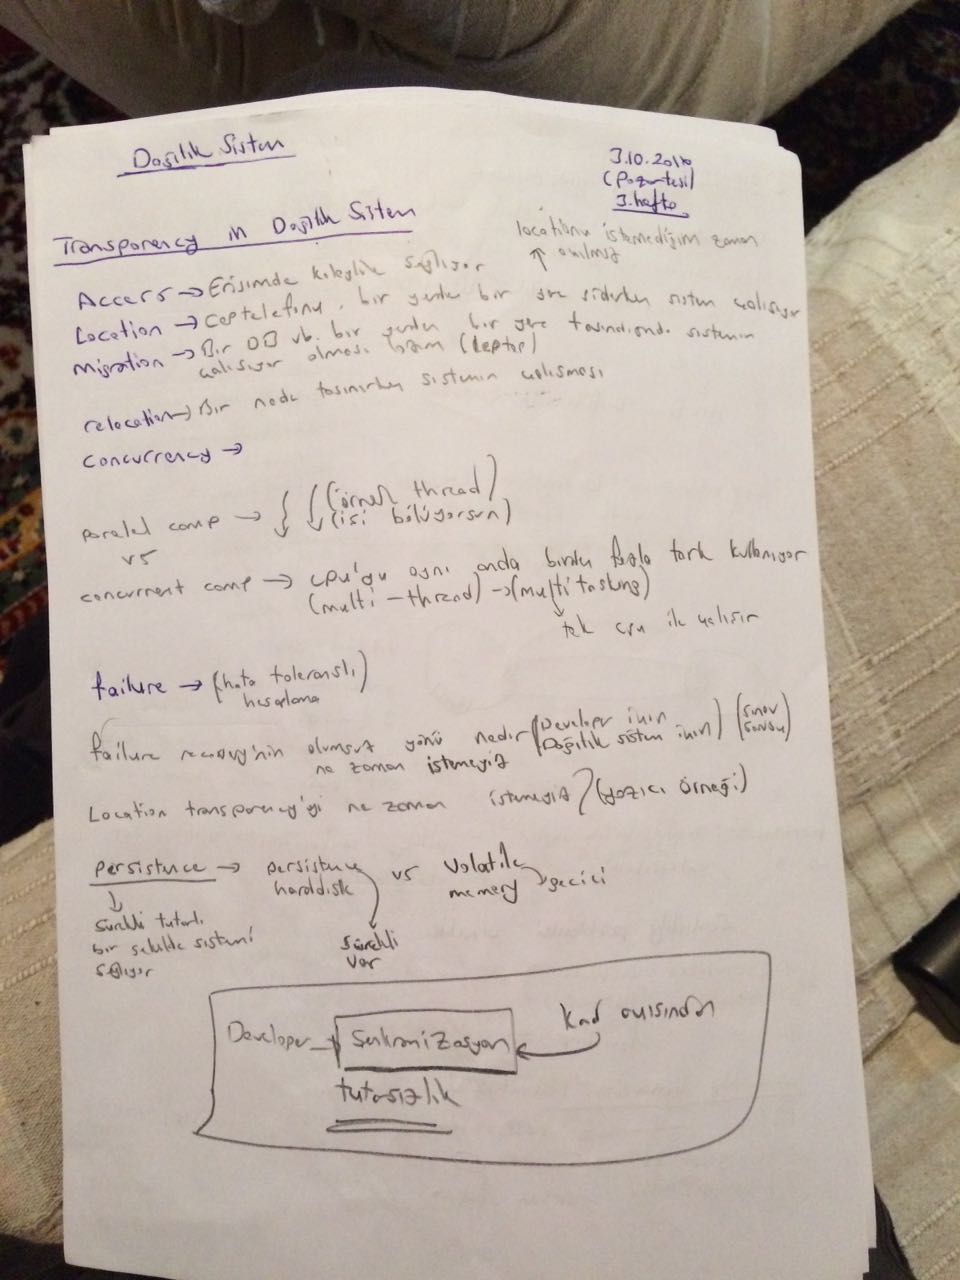 Dağılık Sistem
3.10.2016
(Pazartesi)
3. hafta
Transparency in Dağılık Sistem
locationu istemediğim zaman
Access → Erişimde kolaylık sağlıyor
Location → cep telefonu, bir yerden bir yere giderken sistem çalışıyor
Migration → Bir DB vb. bir yerden bir yere taşındığında sistemin
çalışıyor olması lazım (laptop)
relocation → Bir node taşınırken sistemin çalışması
concurrency →
paralel comp → (örnek thread)
(işi bölüyorsun)
vs
concurrent comp → cpu'yu aynı anda birden fazla task kullanıyor
(multi-thread) → (multi tasking)
tek cpu ile çalışır
failure → (hata toleranslı)
hesaplama
failure recovry'nin olumsuz yönü nedir (Developer için) (sınav
ne zaman istemeyiz Dağılık sistem için) sorusu)
Location transparency'yi ne zaman istemeyiz? (yazıcı örneği)
persistence → persistence vs volatile → geçici
harddisk memery
sürekli tutarlı
bir şekilde sistemi
sürekli
var
Developer → Senkronizasyon
kod açısından
tutarsızlık